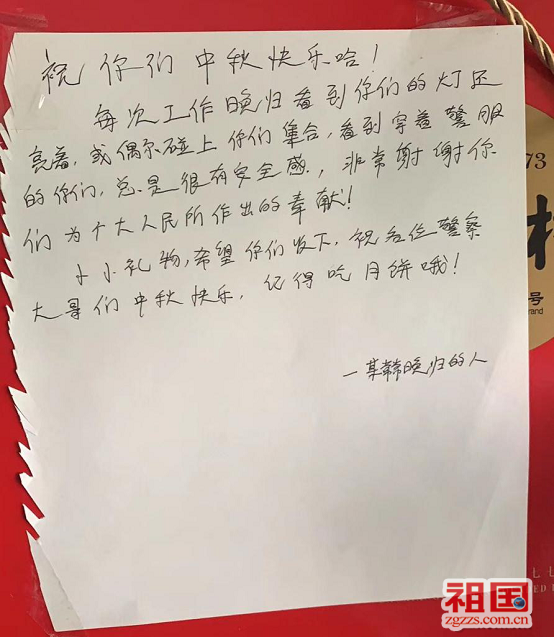 祝你们中秋快乐哈!
每次工作晚归看到你们的灯还
亮着,或偶尔碰上你们集合,看到穿着警服
的你们,总是很有安全感,非常谢谢你
们为广大人民所作出的奉献!
小小礼物,希望你们收下,祝各位警察
大哥们中秋快乐,记得吃月饼哦!
一某常晚归的人
73
号
rand
七七
祖国
zgzzs.com.cn